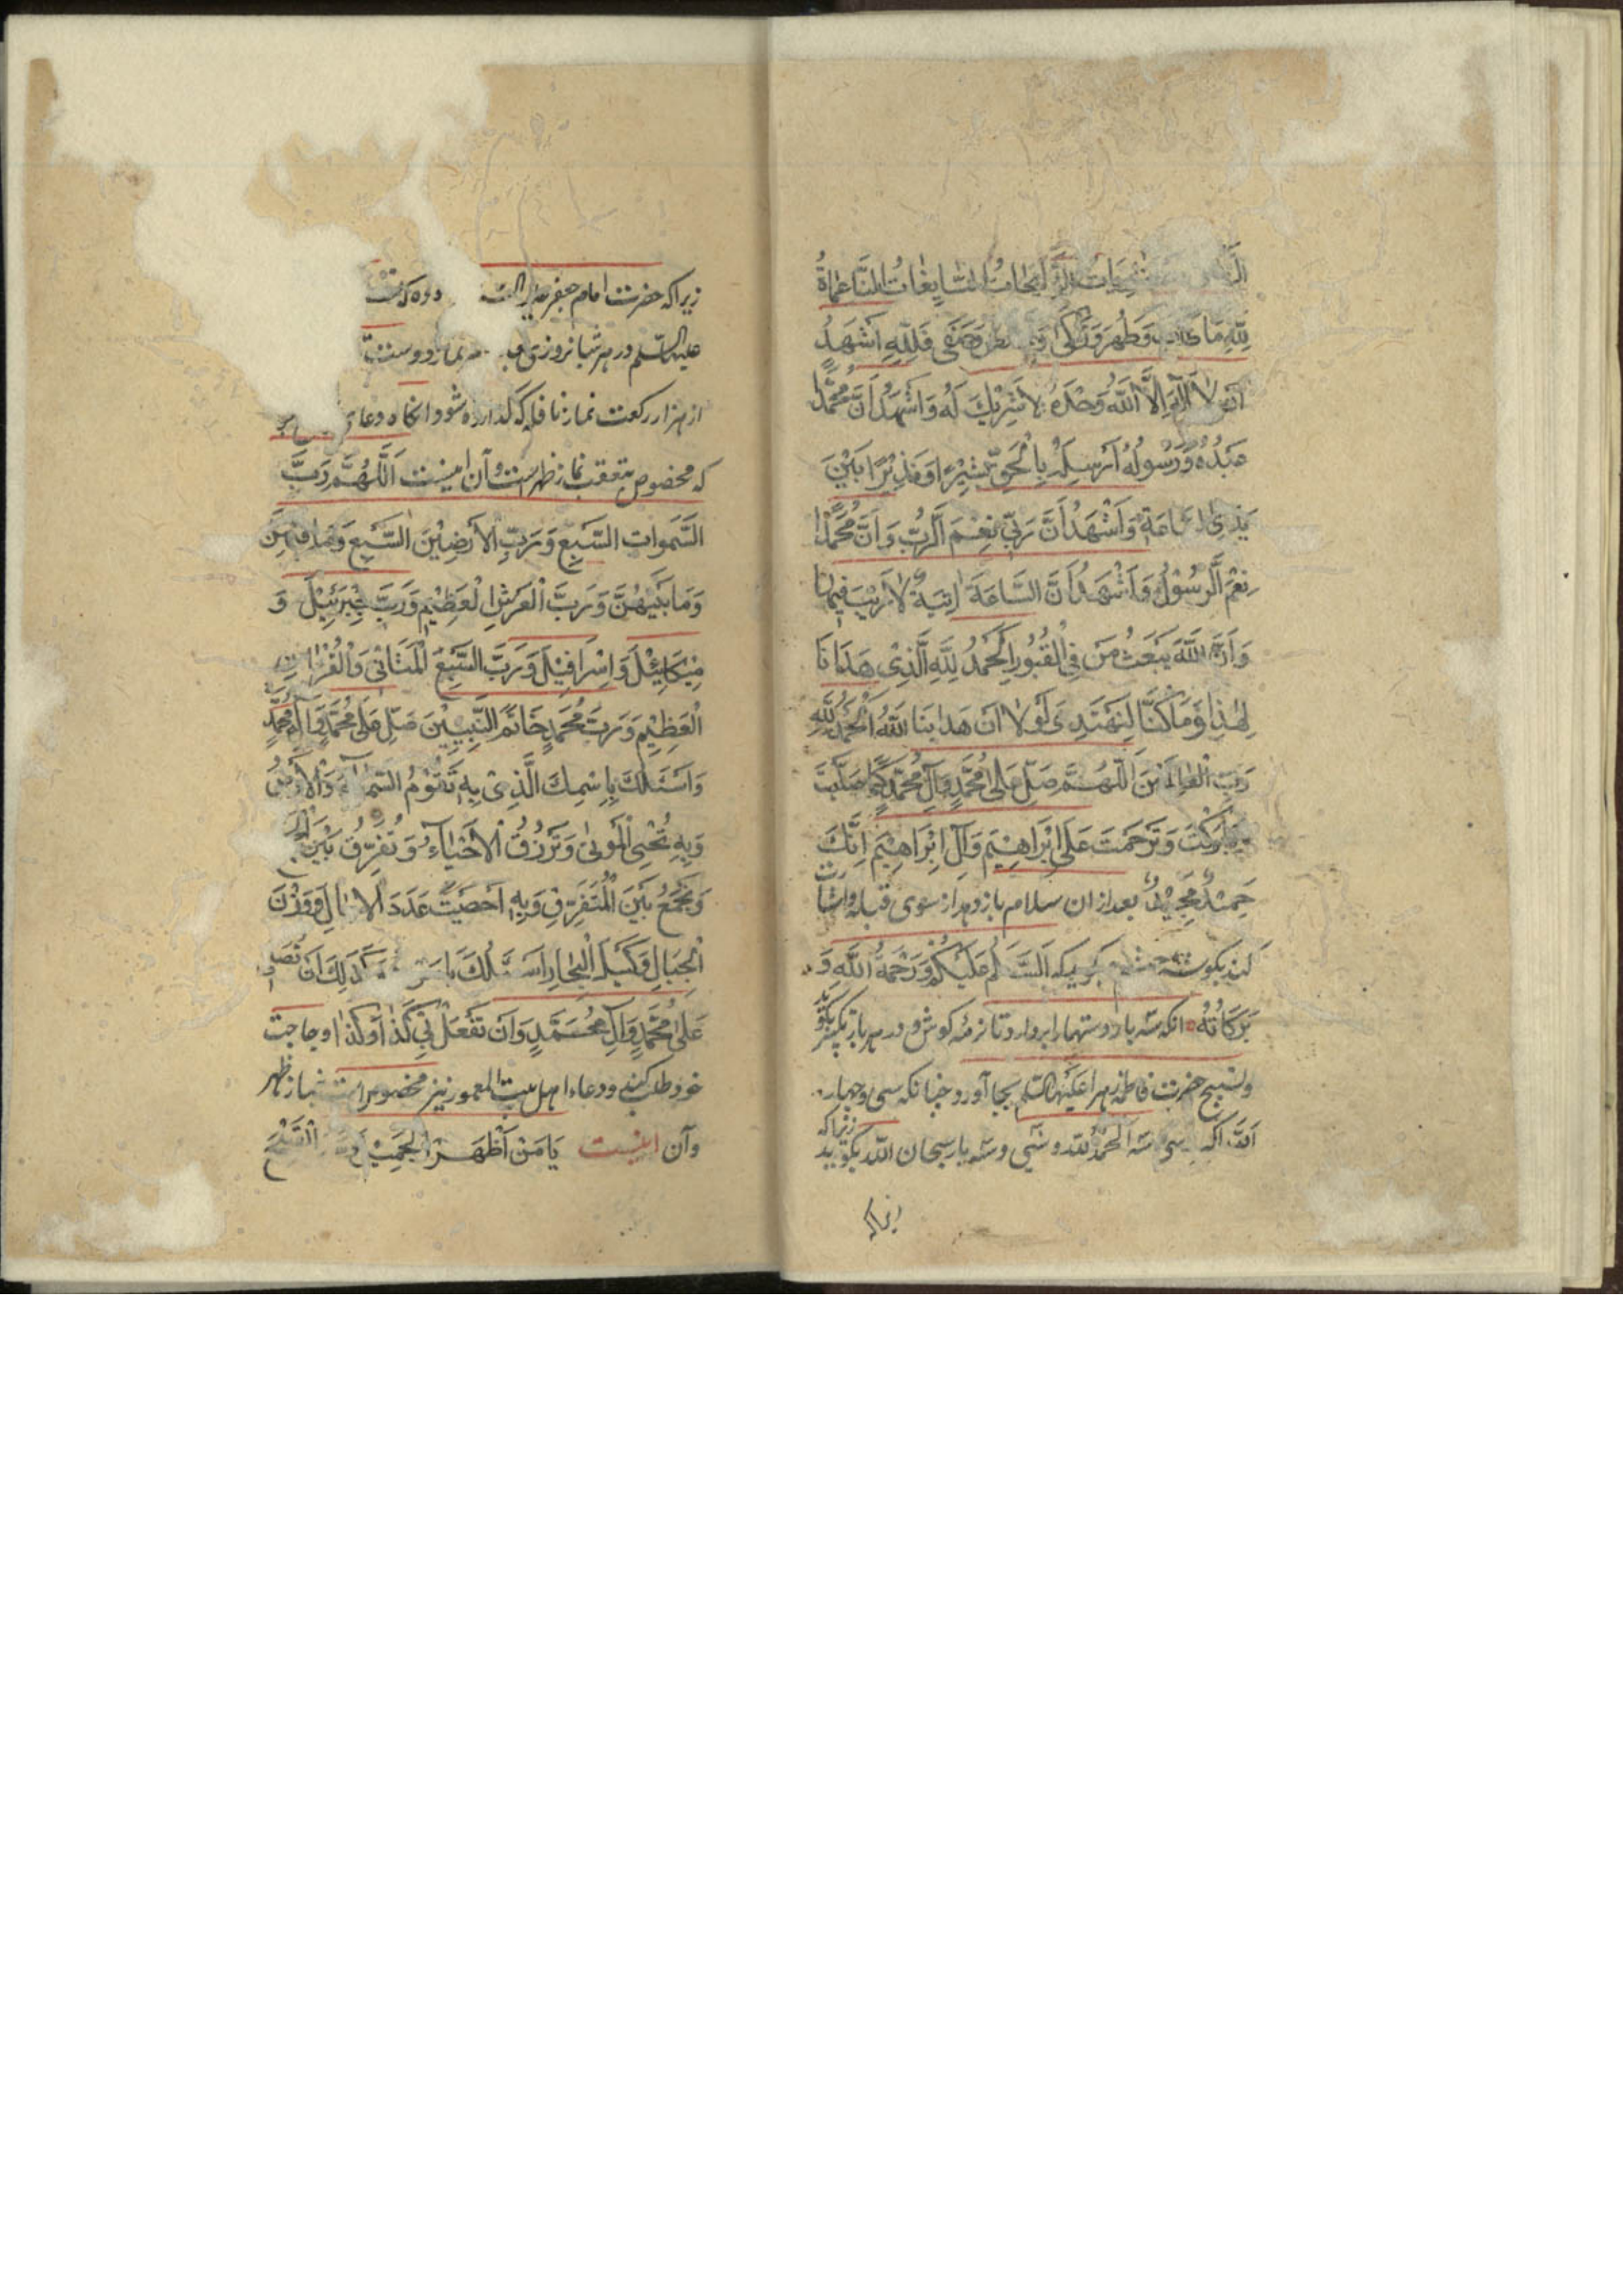 الرائحات السابغات الناعمات
لِلّٰهِ مَا طَابَ وَطَهُرَ وَزَكٰى وَصَفٰى فَلِلّٰهِ اَشْهَدُ
اَنْ لَا اِلٰهَ اِلَّا اللّٰهُ وَحْدَهُ لَا شَرِيْكَ لَهُ وَاَشْهَدُ اَنَّ مُحَمَّدًا
عَبْدُهُ وَرَسُولُهُ اَرْسَلَهُ بِالْحَقِّ بَشِيْرًا وَنَذِيْرًا بَيْنَ
يَدَيِ السَّاعَةِ وَاَشْهَدُ اَنَّ رَبِّي نِعْمَ الرَّبُّ وَاَنَّ مُحَمَّدًا
نِعْمَ الرَّسُوْلُ وَاَشْهَدُ اَنَّ السَّاعَةَ اٰتِيَةٌ لَا رَيْبَ فِيهَا
وَاَنَّ اللّٰهَ يَبْعَثُ مَنْ فِي الْقُبُورِ الْحَمْدُ لِلّٰهِ الَّذِي هَدَانَا
لِهٰذَا وَمَا كُنَّا لِنَهْتَدِيَ لَوْلَا اَنْ هَدَانَا اللّٰهُ اَلْحَمْدُ لِلّٰهِ
رَبِّ الْعَالَمِيْنَ اَللّٰهُمَّ صَلِّ عَلٰى مُحَمَّدٍ وَآلِ مُحَمَّدٍ كَمَا صَلَّيْتَ
وَبَارَكْتَ وَتَرَحَّمْتَ عَلَى اِبْرَاهِيْمَ وَآلِ اِبْرَاهِيْمَ اِنَّكَ
حَمِيْدٌ مَجِيْدٌ بعد از ان سلام باز دهد از سوی قبله واشارت
کند بکوشه چشم اَلسَّلَامُ عَلَيْكُمْ وَرَحْمَةُ اللّٰهِ وَ
بَرَكَاتُهُ انکه سه بار دستها را بردارد تا نرمه کوش و در هر بار تکبیر بکوید
وتسبیح حضرت فاطمه زهرا علیها السلام بجا آورد چنانکه سی وچهار
الله اکبر سی وسه الحمد لله وسی وسه بار سبحان الله بکوید زیرا که
زیرا که
زیرا که حضرت امام جعفر علیه السلام
علیها السلم در هر شبانروزی دوست
از هزار رکعت نماز نافله که کذارده شود وانکاه دعای
که مخصوص بتعقب نماز ظهر است وآن اینست اَللّٰهُمَّ رَبَّ
السَّمٰوَاتِ السَّبْعِ وَرَبِّ الْاَرَضِيْنَ السَّبْعِ وَمَا فِيْهِنَّ
وَمَا بَيْنَهُنَّ وَرَبَّ الْعَرْشِ الْعَظِيْمِ وَرَبَّ جَبْرَئِيْلَ وَ
مِيْكَائِيْلَ وَاِسْرَافِيْلَ وَرَبَّ السَّبْعِ الْمَثَانِي وَالْقُرْاٰنِ
الْعَظِيْمِ وَرَبَّ مُحَمَّدٍ خَاتَمِ النَّبِيِّيْنَ صَلِّ عَلٰى مُحَمَّدٍ وَآلِ مُحَمَّدٍ
وَاَسْئَلُكَ بِاسْمِكَ الَّذِي بِهِ تَقُوْمُ السَّمَاءُ وَالْاَرْضُ
وَبِهِ تُحْيِي الْمَوْتٰى وَتَرْزُقُ الْاَحْيَاءَ وَتُفَرِّقُ بَيْنَ الْجَمْعِ
وَتَجْمَعُ بَيْنَ الْمُتَفَرِّقِ وَبِهِ اَحْصَيْتَ عَدَدَ الْاٰجَالِ وَوَزْنَ
الْجِبَالِ وَكَيْلَ الْبِحَارِ اَسْئَلُكَ يَا مَنْ هُوَ كَذٰلِكَ اَنْ تُصَلِّيَ
عَلٰى مُحَمَّدٍ وَآلِ مُحَمَّدٍ وَاَنْ تَفْعَلَ بِي كَذَا اَوْ كَذَا وحاجت
خود طلب کند ودعاء اهل بیت المعمور نیز مخصوص است بنماز ظهر
وآن اینست يَا مَنْ اَظْهَرَ الْجَمِيْلَ وَسَتَرَ الْقَبِيْحَ